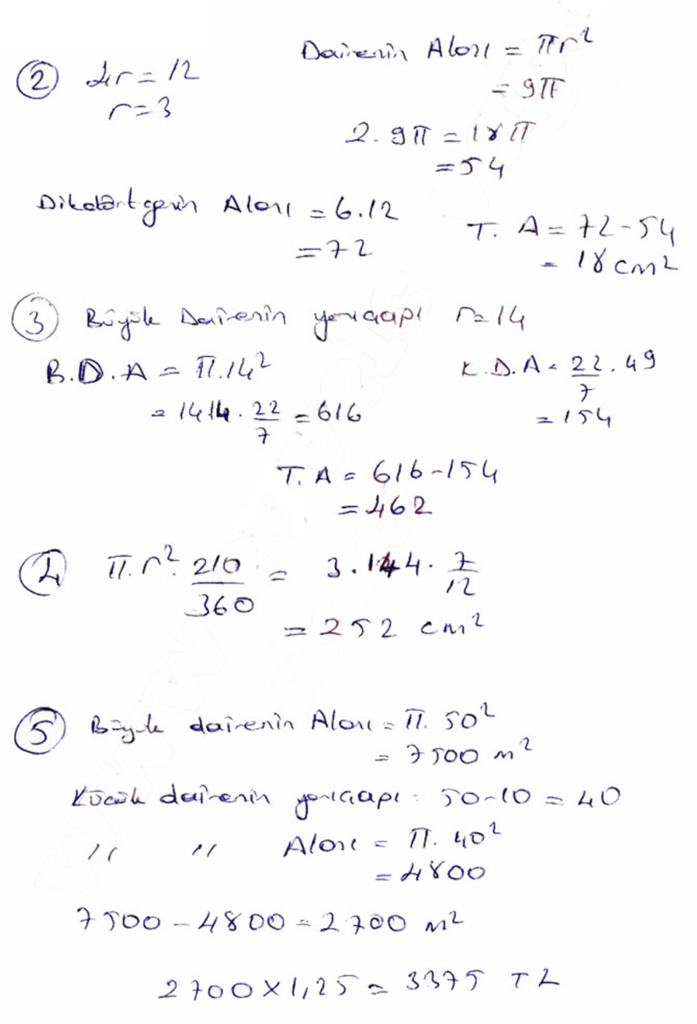 ② 4r = 12
r = 3
Dairenin Alanı = πr²
= 9π
2. 9π = 18π
= 54
Dikdörtgenin Alanı = 6.12
= 72
T. A = 72 - 54
= 18 cm²
③ Büyük Dairenin yarıçapı r = 14
B.D.A = π.14²
= 14 14. 22/7 = 616
K.D.A = 22/7 . 49
= 154
T. A = 616 - 154
= 462
④ π.r². 210/360 = 3.144. 7/12
= 252 cm²
⑤ Büyük dairenin Alanı = π. 50²
= 7500 m²
Küçük dairenin yarıçapı = 50-10 = 40
" " Alanı = π. 40²
= 4800
7500 - 4800 = 2700 m²
2700 x 1,25 = 3375 TL